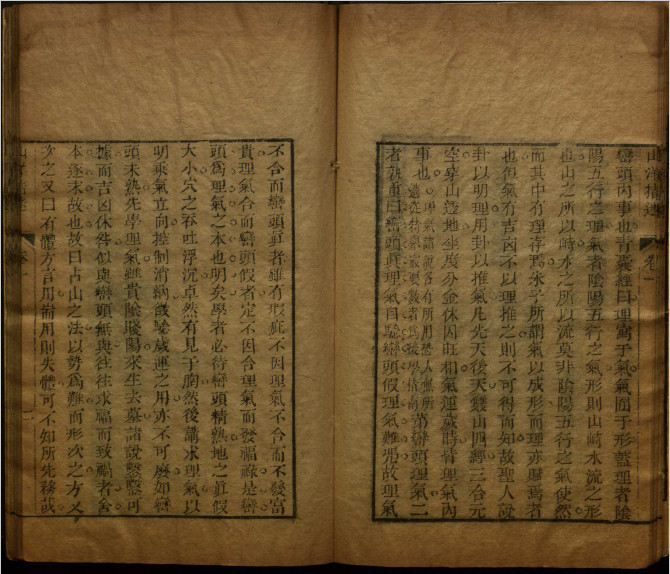 巒頭內事也青囊經曰理寓于氣氣囿于形蓋理者陰
陽五行之理氣者陰陽五行之氣形則山峙水流之形
也山之所以峙水之所以流莫非陰陽五行之氣使然
而其中有理存焉朱子所謂氣以成形而理亦賦焉者
也但氣有吉凶不以理推之則不可得而知故聖人說
卦以明理用卦以推氣凡先天後天雙山四經三合元
空穿山透地坐度分金休囚旺相氣運歲時皆理氣內
事也 第巒頭理氣二
者孰重曰巒頭真理氣自驗巒頭假理氣難憑故理氣
不合而巒頭真者雖有形疵不因理氣不合而不發富
貴理氣合而巒頭假者定不因合理氣而發福祿是巒
頭為理氣之本也明矣學者必待巒頭精熟地之真假
大小穴之吞吐浮沉卓然有見于胸然後講求理氣以
明乘氣立向控制消納徵驗歲運之用亦不可廢如巒
頭未熟先學理氣雖貴陰賤陽來生去墓諸說鑿鑿可
據而吉凶休咎似與巒頭無與往往求福而致禍者舍
本逐末故也故曰占山之法以勢為難而形次之方又
次之又曰有體方言用有用則失體可不知所先務哉
卷一